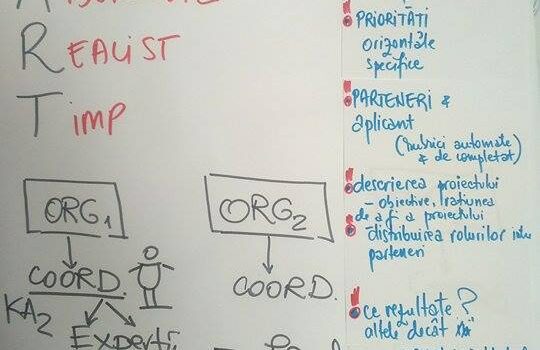 REALIST
TIMP
ORG1
ORG2
COORD.
COORD.
KA2
Experți
PRIORITĂȚI
orizontale
specifice
PARTENERI &
aplicant
(rubrici automate
& de completat)
descrierea proiectului
- obiective, rațiunea
de a fi a proiectului
- distribuirea rolurilor
parteneri
ce rezultate?
altele decât